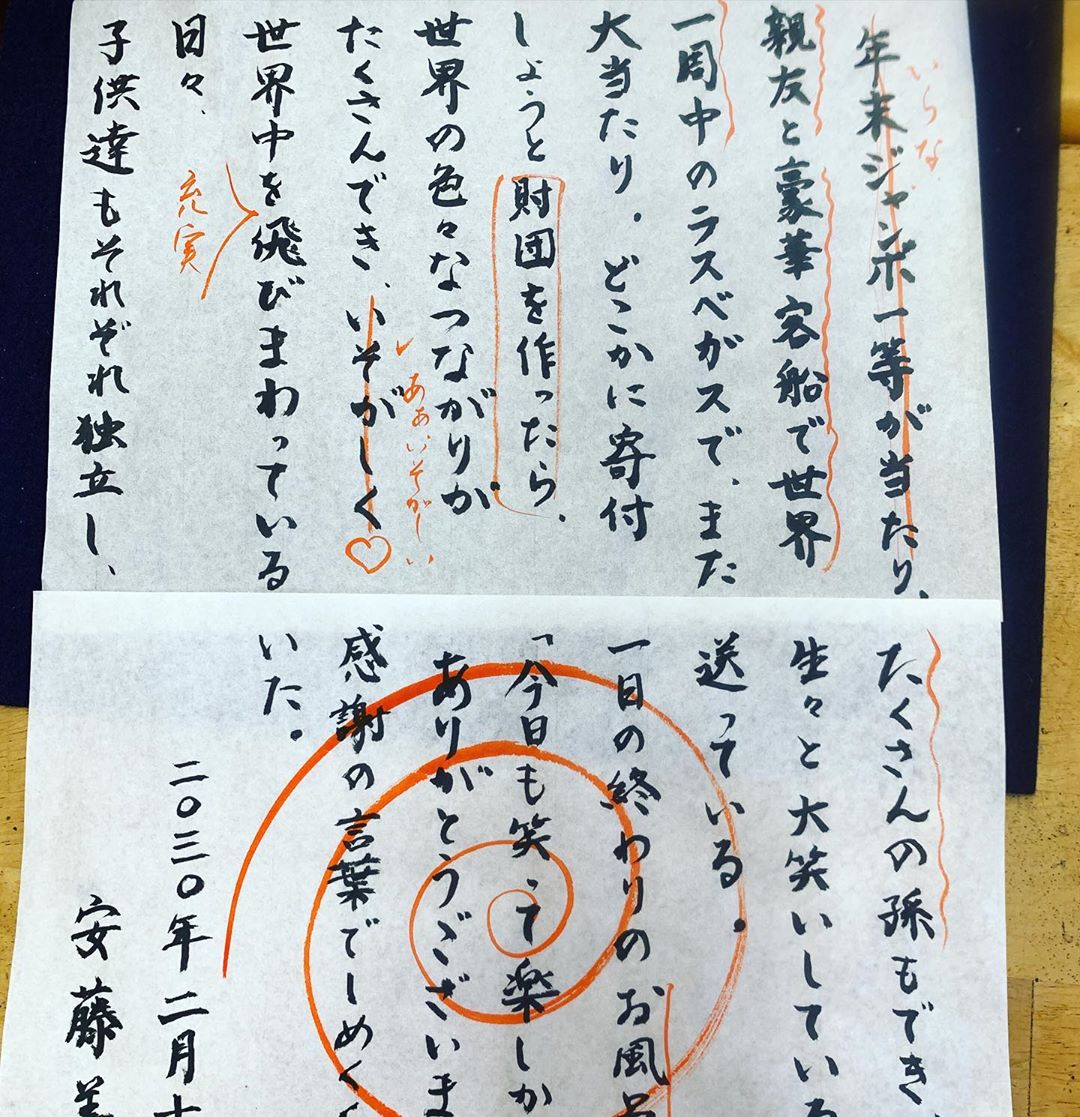 年末ジャンボ一等が当たり、
いらな
親友と豪華客船で世界
一周中のラスベガスで、また
大当たり。どこかに寄付
しようと財団を作ったら、
世界の色々なつながりが
たくさんでき、いそがしく
ああいそがしい
世界中を飛びまわっている
充実
日々、
子供達もそれぞれ独立し、
たくさんの孫もでき
生々と大笑いしている
送っている。
一日の終わりのお風呂
「今日も笑って楽しか
ありがとうございま
感謝の言葉でしめく
いた。
二〇三〇年二月十
安藤美